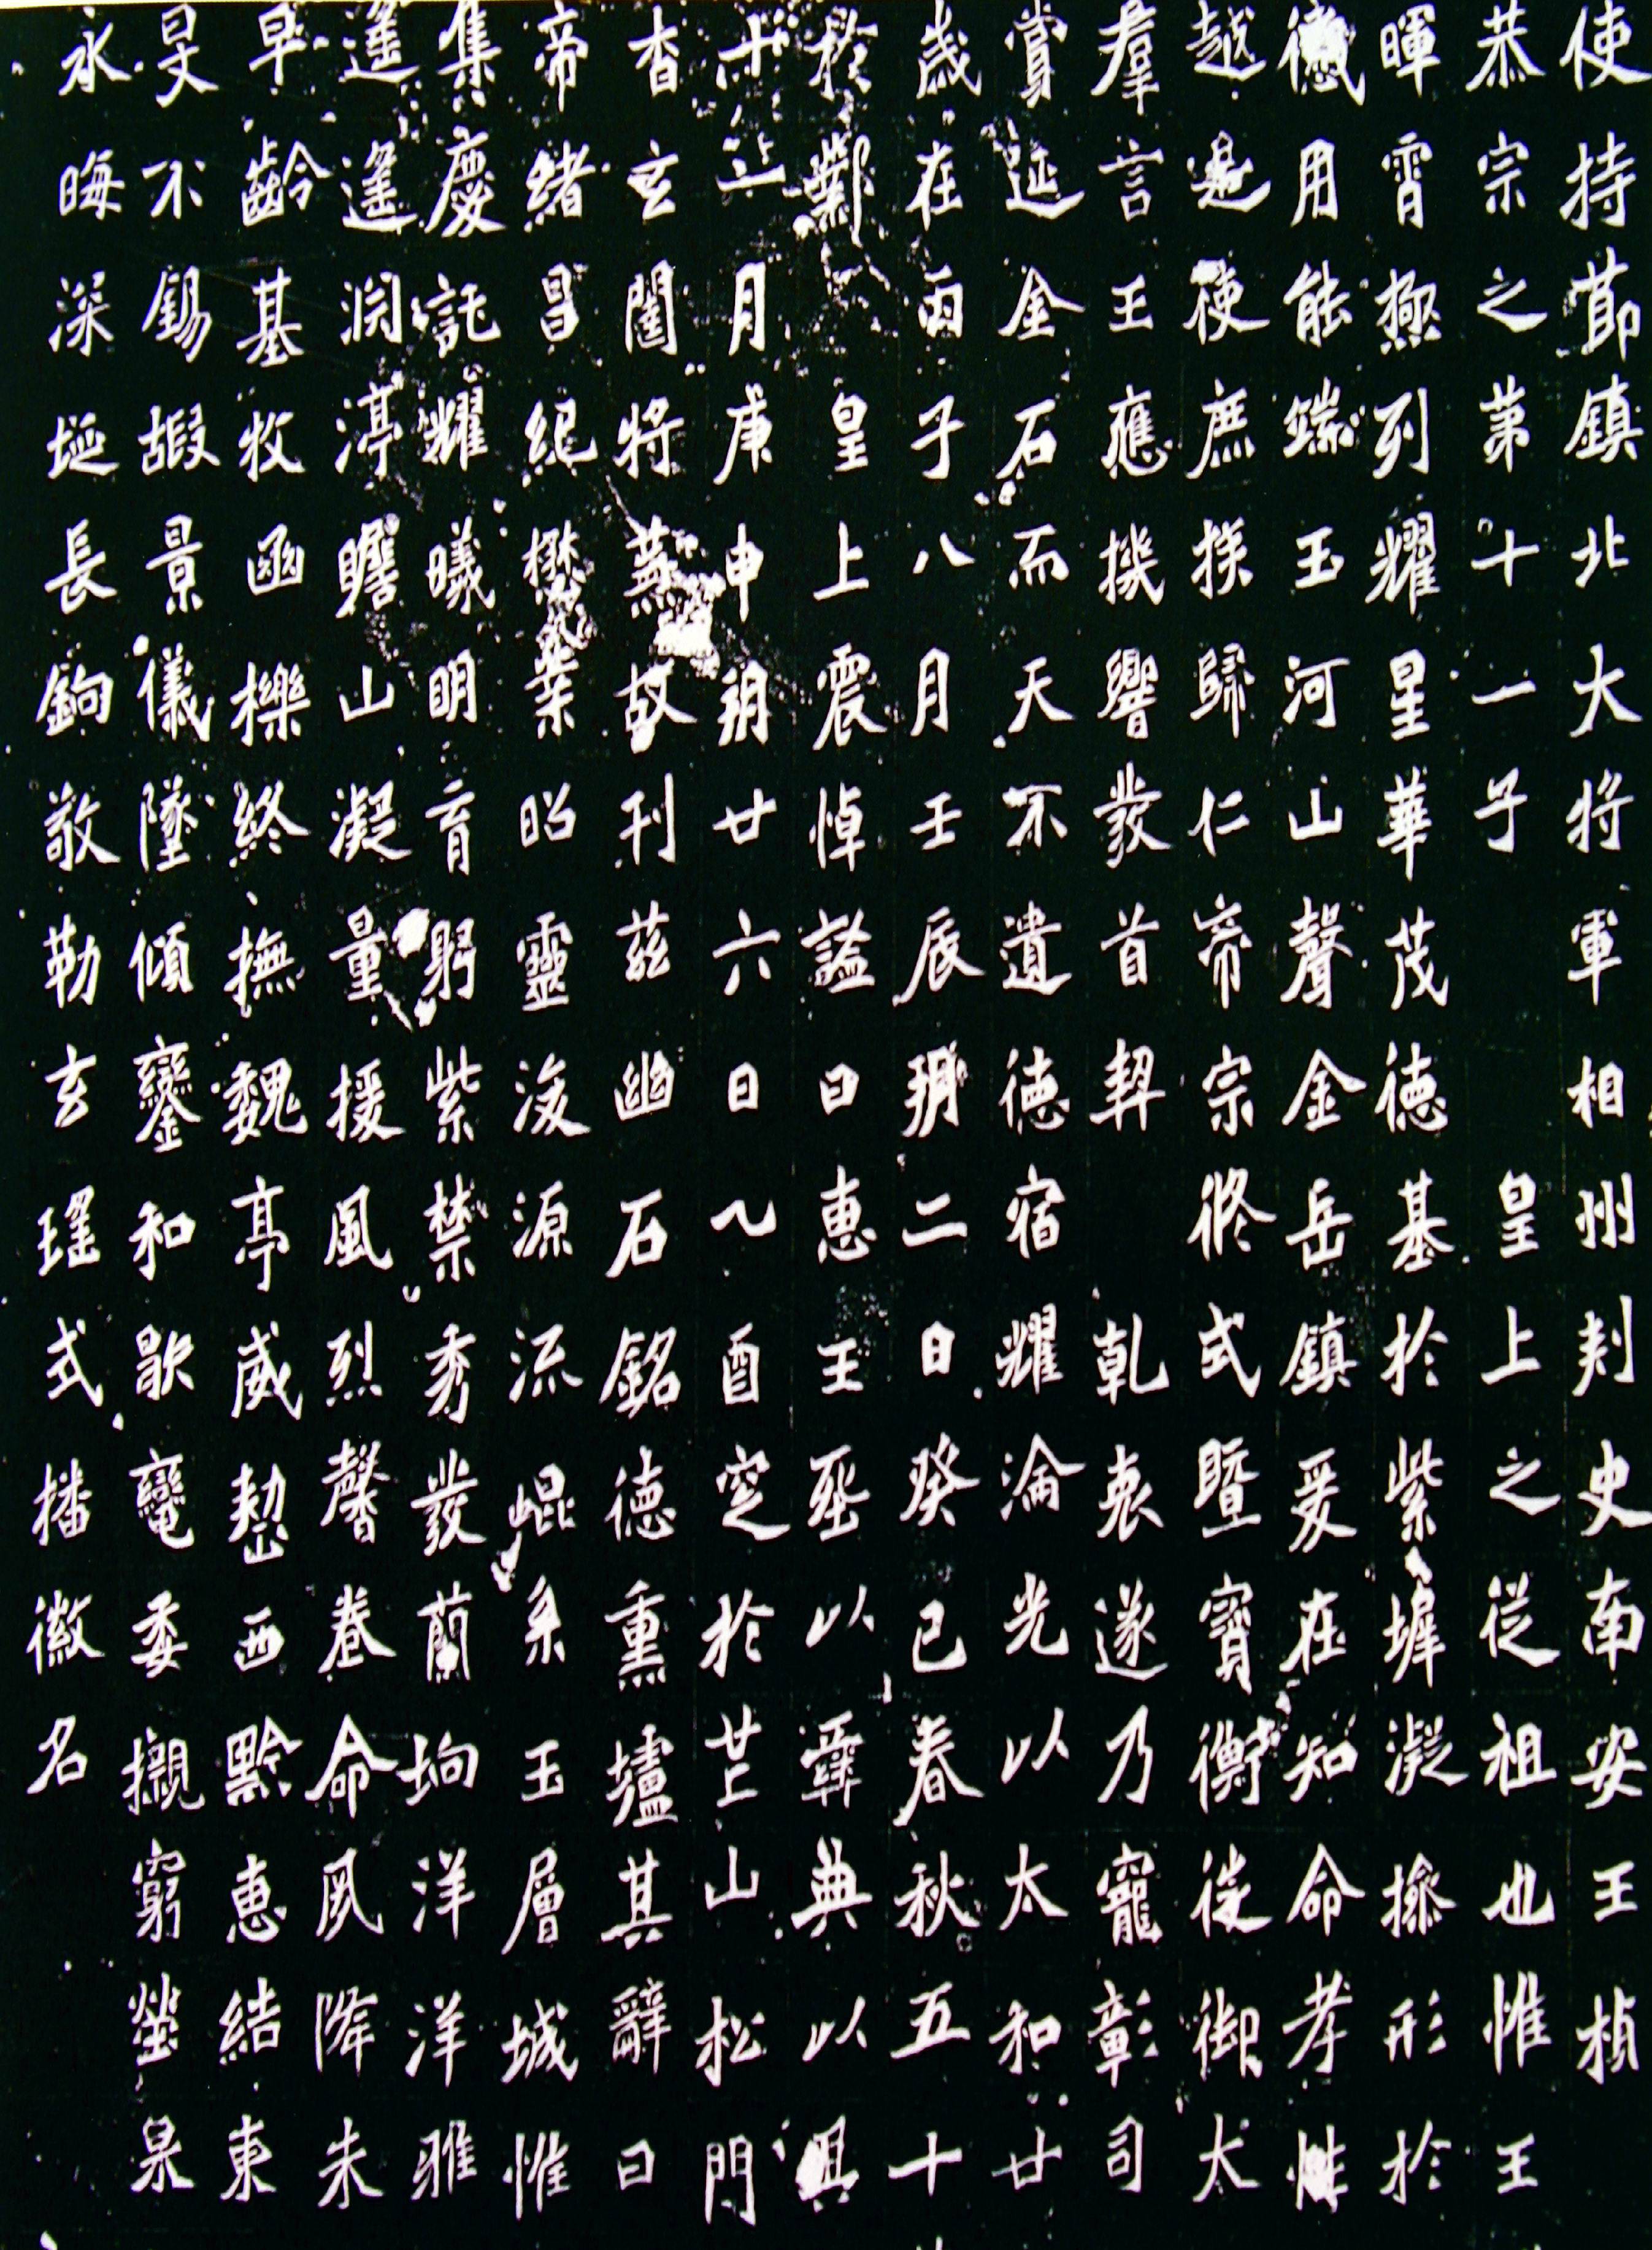 使持節鎮北大將軍相州刺史南安王楨
恭宗之第十一子皇上之從祖也惟王
暉霄極列耀星華茂德基於紫墀凝操形於
天用能端玉河山聲金岳鎮爰在知命孝性
越是使庶族歸仁帝宗攸式暨寶衡徙御大
羣言王應機響發首契乾衷遂乃寵彰司
賞延金石而天不遺德宿耀淪光以太和廿
歲在丙子八月壬辰朔二日癸巳春秋五十
於鄴皇上震悼諡曰惠王葬以彝典以
十一月庚申朔廿六日乙酉窆於芒山松門
杳玄闥將蕪故刊茲幽石銘德熏壚其辭曰
帝緒昌紀懋業昭靈浚源流崐系玉層城惟
集慶託耀曦明育躬紫禁秀發蘭坰洋洋雅
遙遙淵渟瞻山凝量援風烈馨卷命夙降未
早齡基牧函櫟終撫魏亭威愬西黔惠結東
旻不錫嘏景儀墜傾鑾和歇鞃委櫬窮塋泉
永晦深埏長鉤敬勒玄瑤式播徽名